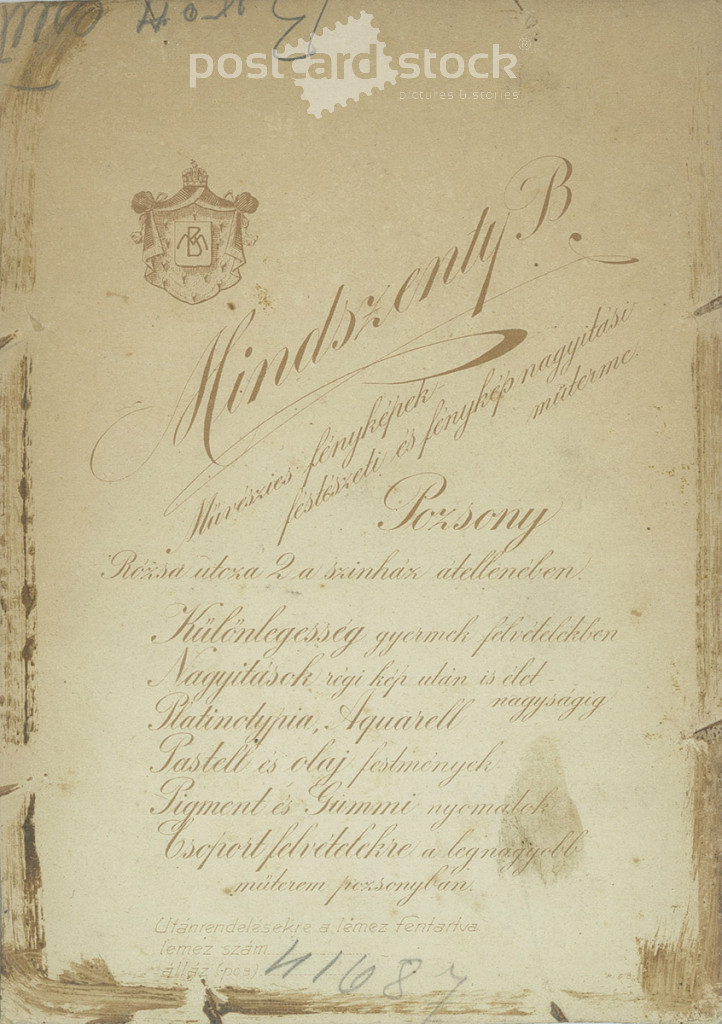 postcardstock®
pictures & stories
BM
Mindszenty B.
Művészies fényképek
festészeti és fénykép nagyitási
műterme.
Pozsony
Rózsa utcza 2 a szinház átellenében.
Különlegesség gyermek felvételekben
Nagyitások régi kép után is élet-
nagyságig
Platinotypia, Aquarell
Pastell és olaj festmények
Pigment és Gummi nyomatok
Csoport felvételekre a legnagyobb
műterem pozsonyban.
Utánrendelésekre a lemez fentartva
lemez szám
41687